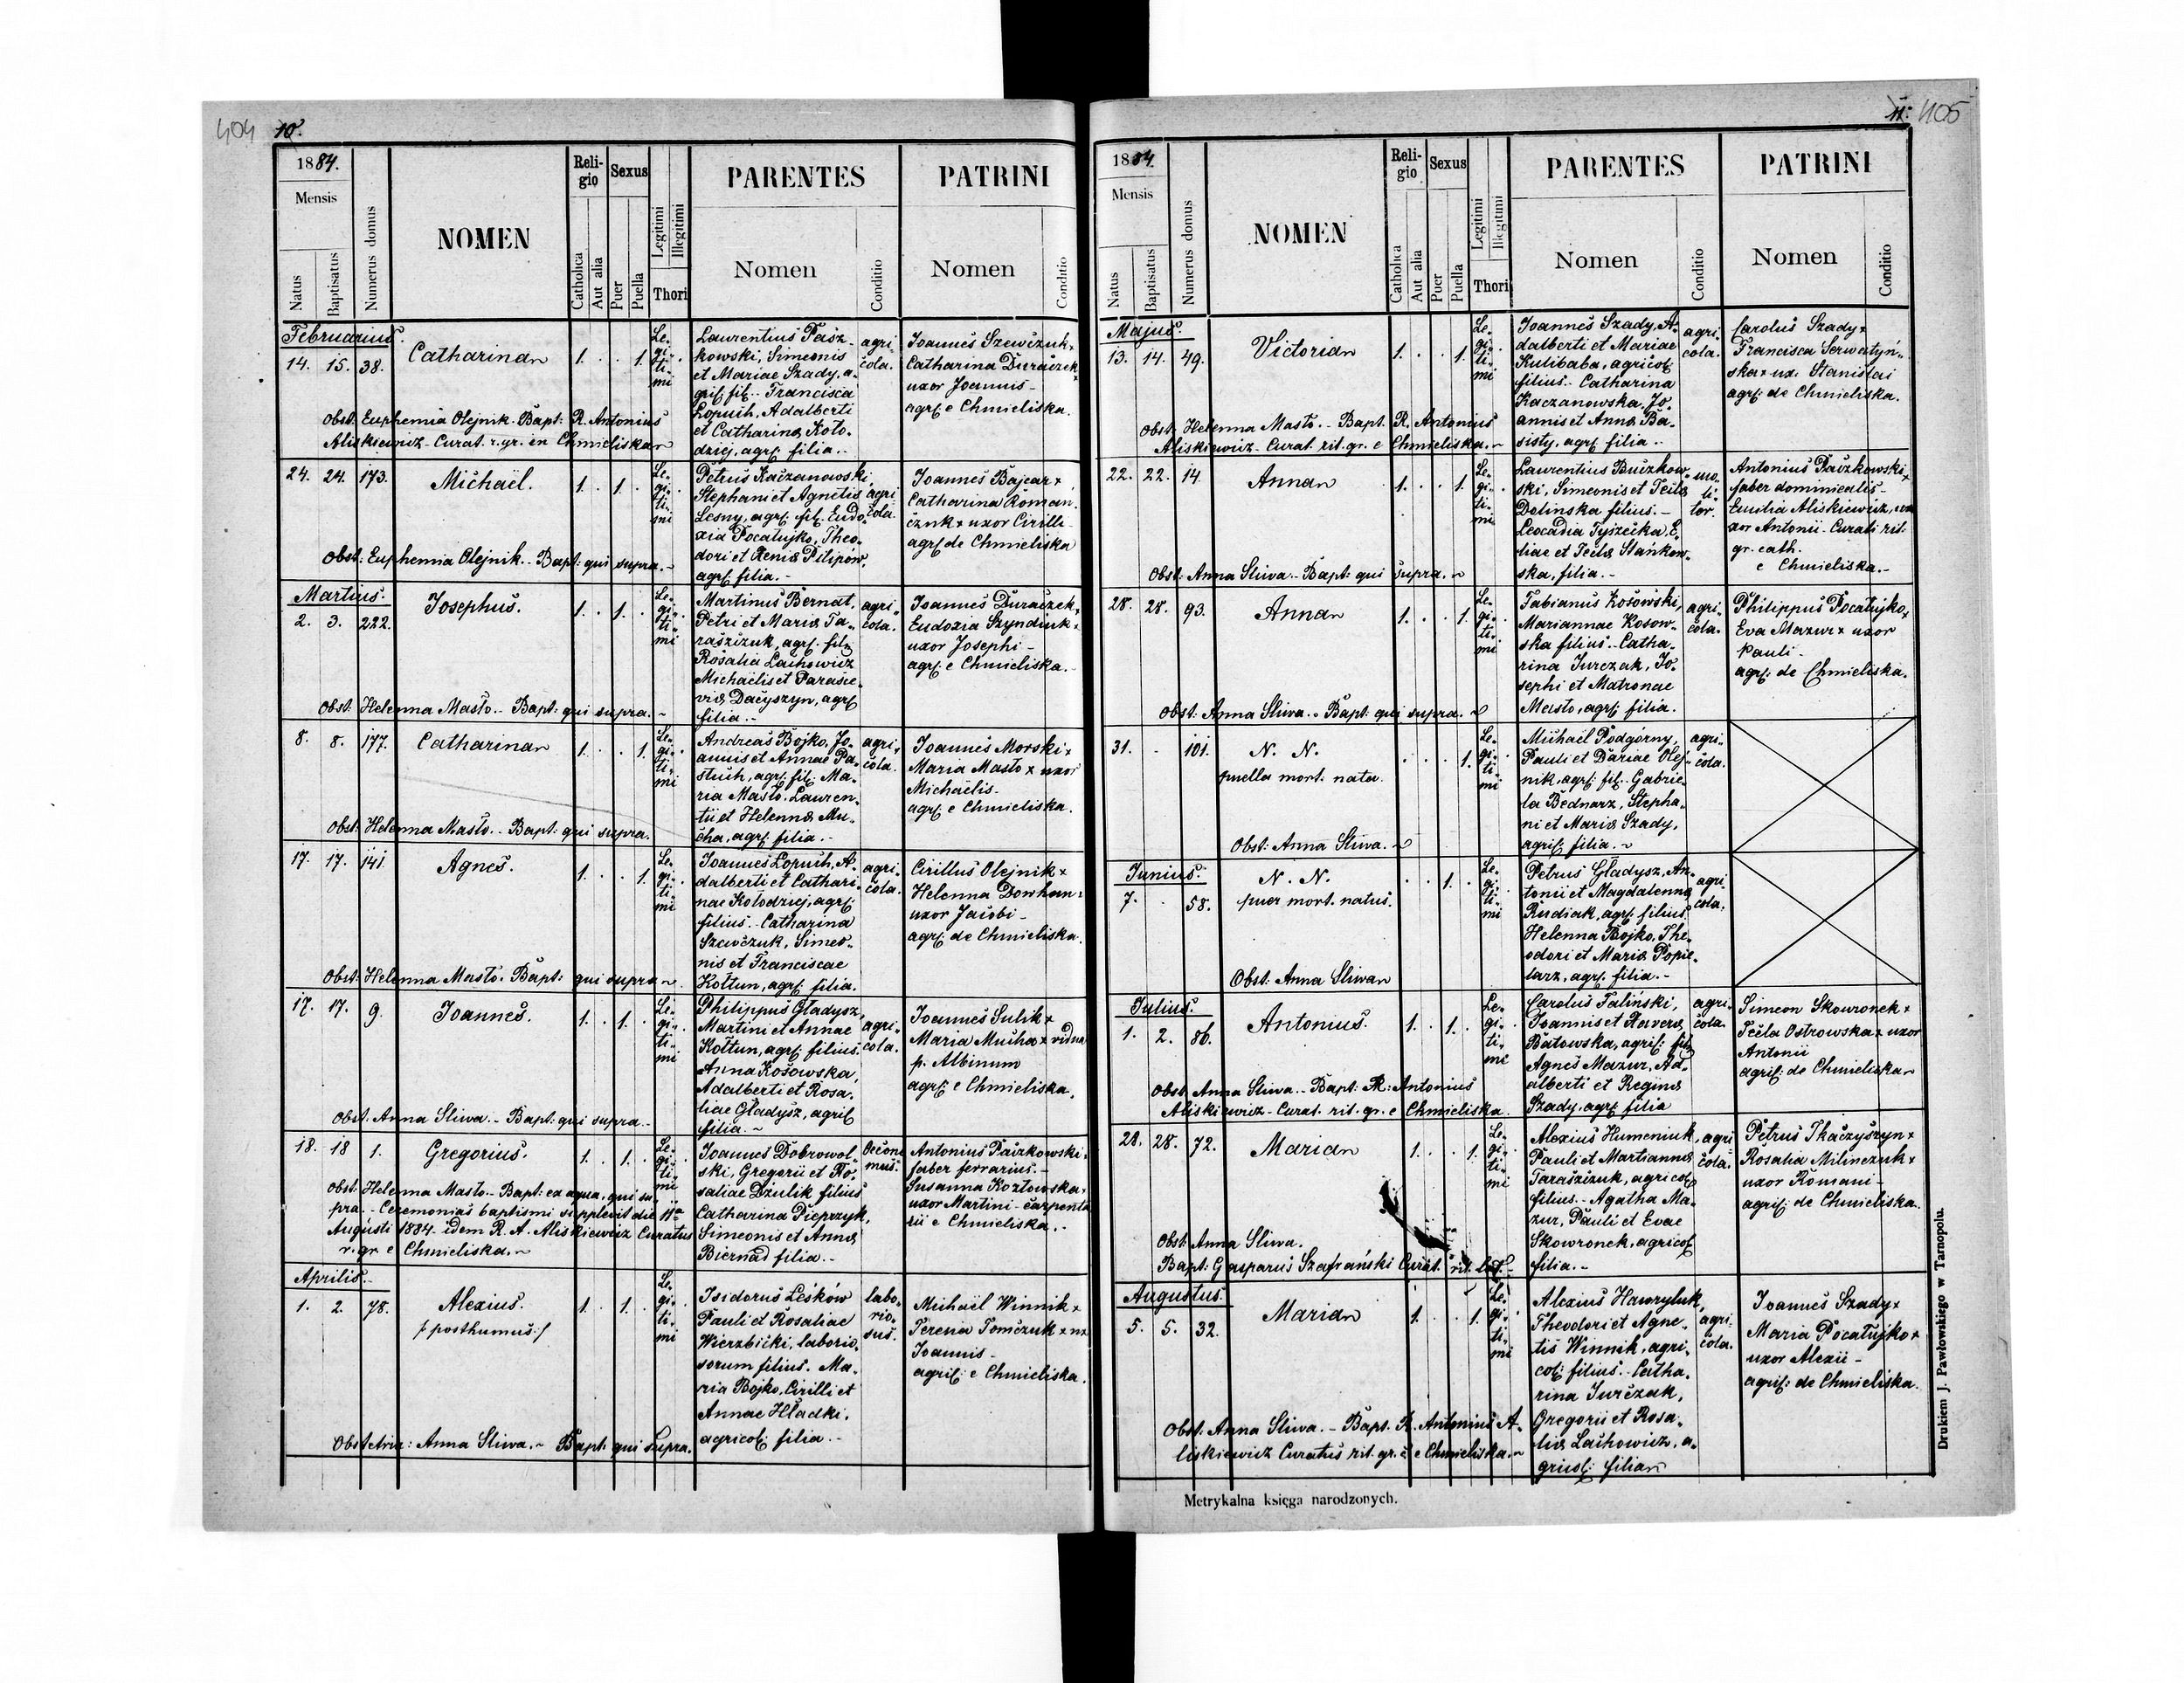 404 10.
1884.
Mensis
Natus
Baptisatus
Numerus domus
NOMEN
Religio
Catholica
Aut alia
Sexus
Puer
Puella
Legitimi
Illegitimi
Thori
PARENTES
Nomen
Conditio
PATRINI
Nomen
Conditio
Februarius.
14. 15. 38.
Catharina
1. . . 1.
Le-
gi-
ti-
mi
Laurentius Pasz-
kowski, Simeonis
et Mariae Szady, a-
gric. fil. Francisca
Lopuch, Adalberti
et Catharinae Koło-
dziej, agric. filia.
agri-
cola.
Joannes Szewczuk +
Catharina Duraczek +
uxor Joannis -
agric. e Chmieliska.
Obst. Euphemia Olejnik. Bapt: R. Antonius
Aliskiewicz - Curat. r. gr. in Chmieliska
24. 24. 173.
Michaël.
1. . 1. .
Le-
gi-
ti-
mi
Petrus Kaczanowski,
Stephani et Agnetis
Lesny, agric. fil. Eudo-
xia Pocałujko, Theo-
dori et Xeniae Pilipów,
agric. filia. -
agri-
cola.
Joannes Bajcar +
Catharina Roman-
czuk + uxor Cirilli -
agric. de Chmieliska
Obst: Euphemia Olejnik. - Bapt: qui supra. -
Martius.
2. 3. 222.
Josephus.
1. . 1. .
Le-
gi-
ti-
mi
Martinus Bernat,
Petri et Mariae Ta-
raszczuk, agric. fil.
Rosalia Lachowicz
Michaëlis et Parasce-
viae Daćyszyn, agric.
filia. -
agri-
cola.
Joannes Duraczek +
Eudoxia Szyndiuk +
uxor Josephi -
agric. e Chmieliska. -
Obst. Helenna Masło. - Bapt: qui supra. -
8. 8. 177.
Catharina
1. . . 1.
Le-
gi-
ti-
mi
Andreas Bojko, Jo-
annis et Annae Pa-
stuch, agric. fil. Ma-
ria Masło, Lauren-
tii et Helennae Mu-
cha, agric. filia. -
agri-
cola.
Joannes Morski +
Maria Masło + uxor
Michaëlis -
agric. e Chmieliska.
Obst: Helenna Masło. - Bapt: qui supra.
17. 17. 141
Agnes.
1. . . 1.
Le-
gi-
ti-
mi
Joannes Lopuch, A-
dalberti et Cathari-
nae Kołodziej, agric.
filius. - Catharina
Szewczuk, Simeo-
nis et Franciscae
Kołtun, agric. filia.
agri-
cola.
Cirillus Olejnik +
Helenna Dowhan +
uxor Jacobi -
agric. de Chmieliska.
Obst: Helenna Masło. Bapt: qui supra
17. 17. 9.
Joannes.
1. . 1. .
Le-
gi-
ti-
mi
Philippus Gładysz,
Martini et Annae
Kołtun, agric. filius.
Anna Kosowska,
Adalberti et Rosa-
liae Gładysz, agric.
filia. -
agri-
cola.
Joannes Sulik +
Maria Mucha + vidua
p. Albinum
agric. e Chmieliska.
Obst. Anna Sliwa. - Bapt: qui supra. -
18. 18 1.
Gregorius.
1. . 1. .
Le-
gi-
ti-
mi
Joannes Dobrowol-
ski, Gregorii et Ro-
saliae Dżulik filius
Catharina Pieprzyk,
Simeonis et Annae
Biernad filia. -
Oecono-
mus.
Antonius Paczkowski +
faber ferrarius. -
Susanna Kozłowska +
uxor Martini - carpenta-
rii e Chmieliska. -
Obst. Helenna Masło. - Bapt: ex aqua, qui su-
pra. - Ceremonias baptismi supplevit die 11a
Augusti 1884. idem R. A. Aliskiewicz Curatus
r. gr. e Chmieliska.
Aprilis. -
1. 2. 78.
Alexius.
/: posthumus :/
1. . 1. .
Le-
gi-
ti-
mi
Isidorus Leśków
Pauli et Rosaliae
Wierzbicki, laborio-
sorum filius. Ma-
ria Bojko, Cirilli et
Annae Hładki,
agricol: filia. -
labo-
rio-
sus.
Michaël Winnik +
Terena Tomczuk + ux
Joannis -
agric: e Chmieliska.
Obstetrix: Anna Sliwa. - Bapt: qui supra.
11. 405
1884.
Mensis
Natus
Baptisatus
Numerus domus
NOMEN
Religio
Catholica
Aut alia
Sexus
Puer
Puella
Legitimi
Illegitimi
Thori
PARENTES
Nomen
Conditio
PATRINI
Nomen
Conditio
Majus.
13. 14. 49.
Victoria
1. . . 1.
Le-
gi-
ti-
mi
Joannes Szady, A-
dalberti et Mariae
Kulibaba, agricol.
filius. - Catharina
Kaczanowska, Jo-
annis et Annae Ba-
sisty, agric. filia. -
agri-
cola.
Carolus Szady +
Francisca Serwatyń-
ska + ux. Stanislai
agric: de Chmieliska.
Obst: Helenna Masło. - Bapt. R. Antonius
Aliskiewicz - Curat. rit. gr. e Chmieliska.
22. 22. 14.
Anna
1. . . 1.
Le-
gi-
ti-
mi
Laurentius Buczkow-
ski, Simeonis et Teclae
Dolinska filius. -
Leocadia Tyszecka, E-
liae et Teclae Stańkow-
ska, filia. -
mo-
li-
tor.
Antonius Paczkowski +
faber dominicalis -
Emilia Aliskiewicz, +
uxor Antonii - Curati rit.
gr. cath.
e Chmieliska. -
Obst: Anna Sliwa. - Bapt: qui supra.
28. 28. 93.
Anna
1. . . 1.
Le-
gi-
ti-
mi
Fabianus Kosowski,
Mariannae Kosow-
ska filius. - Catha-
rina Jurczak, Jo-
sephi et Matronae
Masło, agric: filia.
agri-
cola.
Philippus Pocałujko +
Eva Mazur + uxor
Pauli -
agric: de Chmieliska.
Obst: Anna Sliwa. - Bapt: qui supra.
31. - 101.
N. N.
puella mort. nata.
. . . 1.
Le-
gi-
ti-
mi
Michaël Podgorny,
Pauli et Dariae Olej-
nik, agric: fil. - Gabrie-
la Bednarz, Stepha-
ni et Mariae Szady,
agric: filia.
agri-
cola.
Obst: Anna Sliwa.
Junius.
7. - 58.
N. N.
puer mort. natus.
. . 1. .
Le-
gi-
ti-
mi
Petrus Gładysz, An-
tonii et Magdalennae
Rudiak, agric: filius.
Helenna Bojko, The-
odori et Mariae Popie-
larz, agric. filia. -
agri-
cola.
Obst: Anna Sliwa
Julius.
1. 2. 86.
Antonius.
1. . 1. .
Le-
gi-
ti-
mi
Carolus Faliński,
Joannis et Xaverae
Batowska, agric: fil.
Agnes Mazur, Ad-
alberti et Reginae
Szady, agric filia
agri-
cola.
Simeon Skowronek +
Tecla Ostrowska + uxor
Antonii
agric: de Chmieliska
Obst. Anna Sliwa. - Bapt: R: Antonius
Aliskiewicz - Curat. rit. gr. e Chmieliska.
28. 28. 72.
Maria
1. . . 1.
Le-
gi-
ti-
mi
Alexius Humeniuk,
Pauli et Martiannae
Taraszczuk, agricol
filius. - Agatha Ma-
zur, Pauli et Evae
Skowronek, agricol
filia. -
agri-
cola.
Petrus Tkaczyszyn +
Rosalia Milinczuk +
uxor Romani -
agric: de Chmieliska.
Obst: Anna Sliwa.
Bapt: Gasparus Szafrański Curat. rit. lat. -
Augustus.
5. 5. 32.
Maria
1. . . 1.
Le-
gi-
ti-
mi
Alexius Hawryluk,
Theodori et Agne-
tis Winnik, agri-
col: filius. - Catha-
rina Jurczak,
Gregorii et Rosa-
liae Lachowicz, a-
gricol: filia
agri-
cola.
Joannes Szady +
Maria Pocałujko +
uxor Alexii -
agric: de Chmieliska.
Obst: Anna Sliwa. - Bapt. R. Antonius A-
liskiewicz Curatus rit. gr. c. e Chmieliska.
Metrykalna księga narodzonych.
Drukiem J. Pawłowskiego w Tarnopolu.